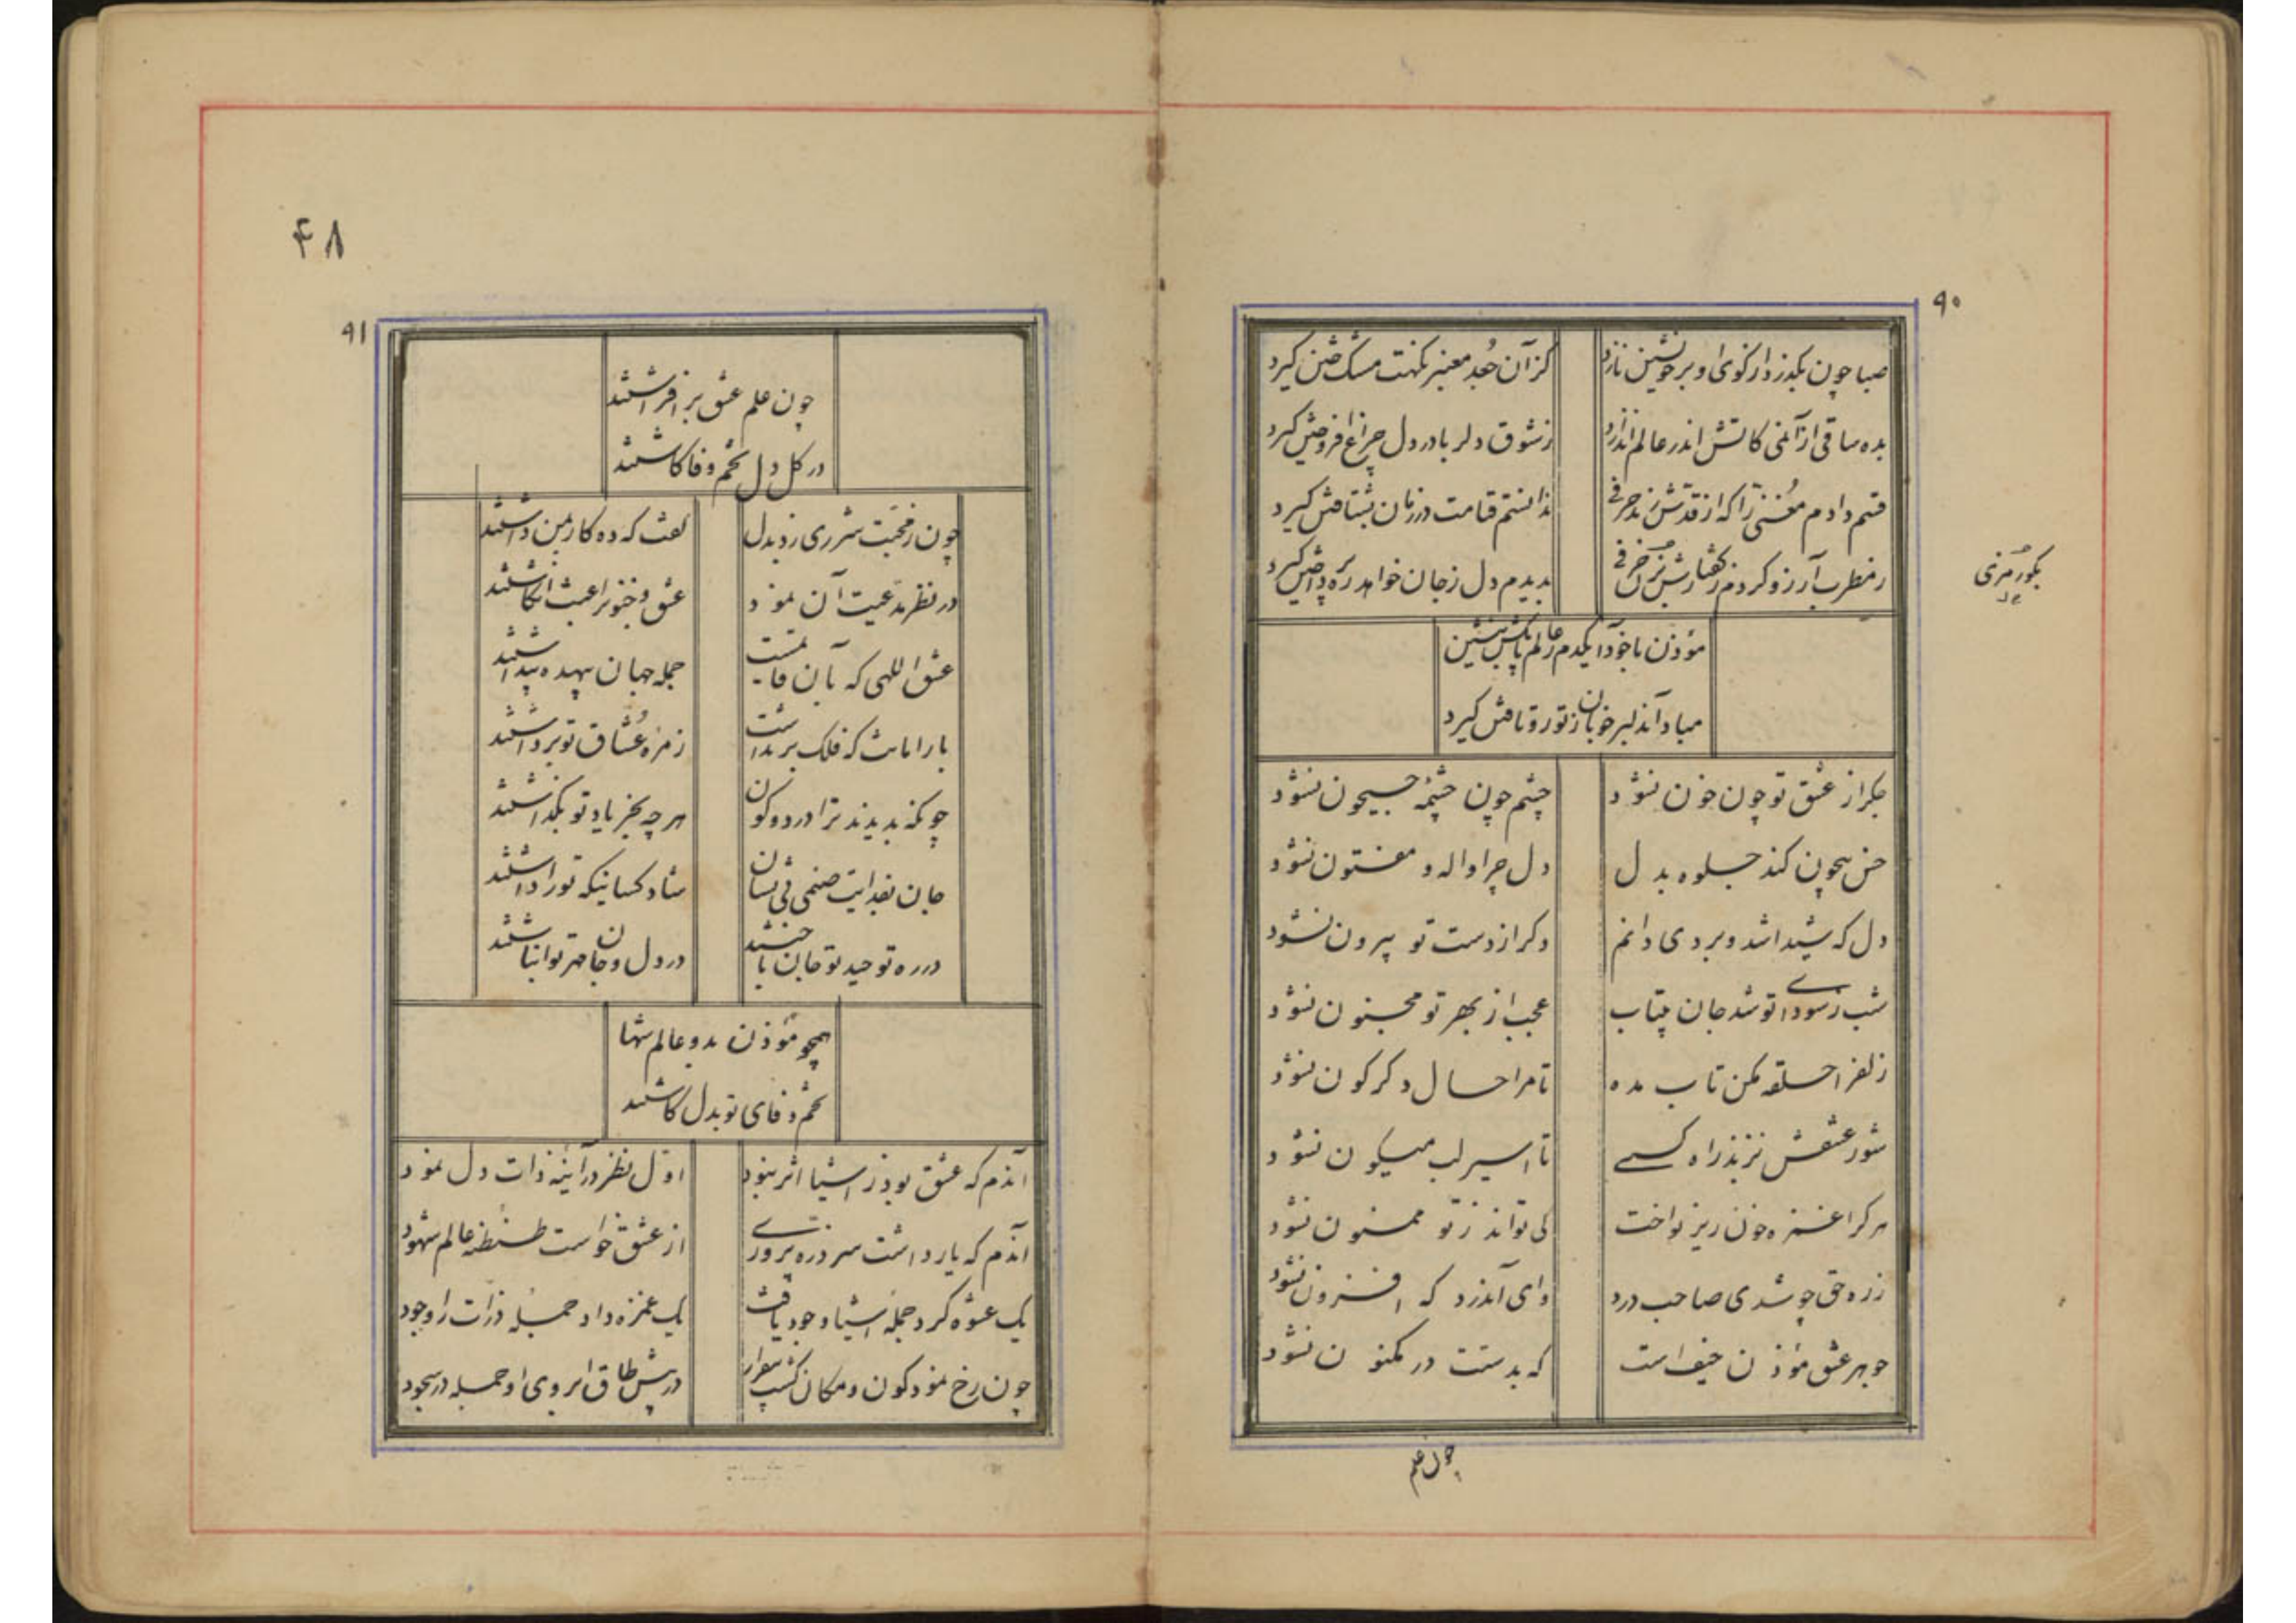 ۹۰
صبا چون بگذرد از کوی او بر خویشتن نازد
کز آن جعد معنبر نکهت مشک ختن گیرد
بده ساقی از آن می کاتش اندر عالم اندازد
ز شوق دلربا در دل چراغ افروختن گیرد
قسم دادم مغنی را که از قدش زند حرفی
ندانستم قیامت در زمان بشتافتن گیرد
ز مطرب آرزو کردم ز گفتارش بزن حرفی
بدیدم دل ز جان خواهد ره پرداختن گیرد
بگو رمزی
مؤذن با خود آ یکدم ز عالم باش بنشین
مبادا آن دلبر خوبان ز تو رو تافتن گیرد
جگر از عشق تو چون خون نشود
چشم چون چشمه جیحون نشود
حسن بیچون کند جلوه بدل
دل چرا واله و مفتون نشود
دل که شیدا شد و بردی دانم
دگر از دست تو بیرون نشود
شب ز سودای تو شد جان بیتاب
عجب از بهر تو مجنون نشود
زلف را حلقه مکن تاب مده
تا مرا حال دگرگون نشود
شور عشقش نزند راه کسی
تا اسیر لب میگون نشود
هر کرا غمزه خون ریز نواخت
کی تواند ز تو ممنون نشود
زره حق چو شدی صاحب درد
وای آندرد که افزون نشود
جوهر عشق مؤذن حیف است
که بدستت در مکنون نشود
چون علم
۴۸
۹۱
چون علم عشق بر افراشتند
در گل دل تخم وفا کاشتند
چون ز محبت شرری زد بدل
گفت که ده کار بمن داشتند
در نظر مدعیت آن نمود
عشق و جنون را عبث انگاشتند
عشق اللهی که بآن قایمست
جمله جهان بیهده پنداشتند
بار امانت که فلک بر نداشت
زمره عشاق تو برداشتند
چونکه بدیدند ترا در دو کون
هر چه بجز یاد تو بگذاشتند
جان بفدایت صنمی فی نشان
شاد کسانیکه تو را داشتند
در ره توحید تو جان باختند
در دل و جان مهر تو انباشتند
همچو مؤذن بدو عالم شها
تخم وفای تو بدل کاشتند
آندم که عشق بود ز اشیا اثر نبود
اول نظر در آینه ذات دل نمود
آندم که یار داشت سر ذره پروری
از عشق خواست طنطنه عالم شهود
یک عشوه کرد جمله اشیا وجود یافت
یک غمزه داد جمله ذرات را وجود
چون رخ نمود کون و مکان گشت بیقرار
در پیش طاق ابروی او جمله در سجود